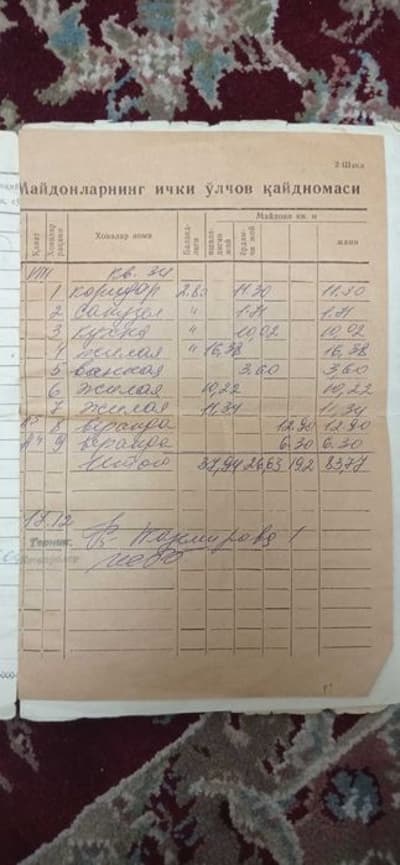 2 Шакл
Майдонларнинг ички ўлчов қайдномаси
Қават Хоналар рақами Хоналар номи Баландлиги Майдони кв. м
яшаладиган жой ёрдамчи жой жами
VIII кв. 34
1 коридор 2.80 11.30 11.30
2 санузел " 1.71 1.71
3 кухня " 10,02 10,02
4 жилая " 16,38 16,38
5 ванная 3.60 3,60
6 жилая 10,22 10,22
7 жилая 11.34 11,34
8 веранда 12.90 12.90
9 веранда 6.30 6.30
Итого 37,94 26,63 19,2 83,77
Техник